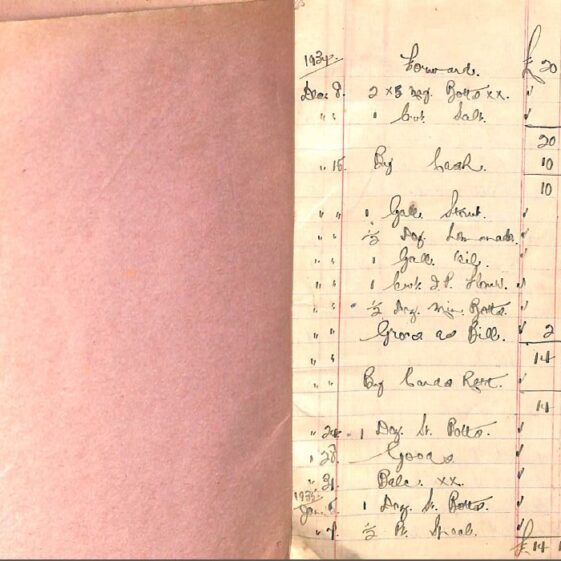 Forward. £ 20
Dec. 8. 2 x 3 Botts xx.
" " 1 Cwt. Salt.
20
" 15. By Cash. 10
10
" " 1 Gall. Stout.
" " ½ Doz. Lemonade.
" " 1 Gall.
" " 1 Cwt. I.P. Flour.
" " ½ Doz. Min. Botts.
" " Grocs as Bill. 2
" " 14
" " By Cards Retd.
14
" 24. 1 Doz. St. Botts.
" 28. Goods
" 31. Bale. xx.
Jan. 1 Doz. St. Botts.
" 7. ½ Pt.
£ 14